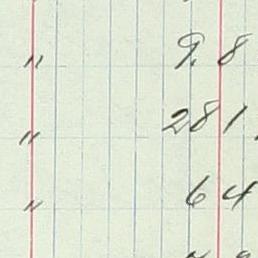 " 9.8
" 281.
" 64